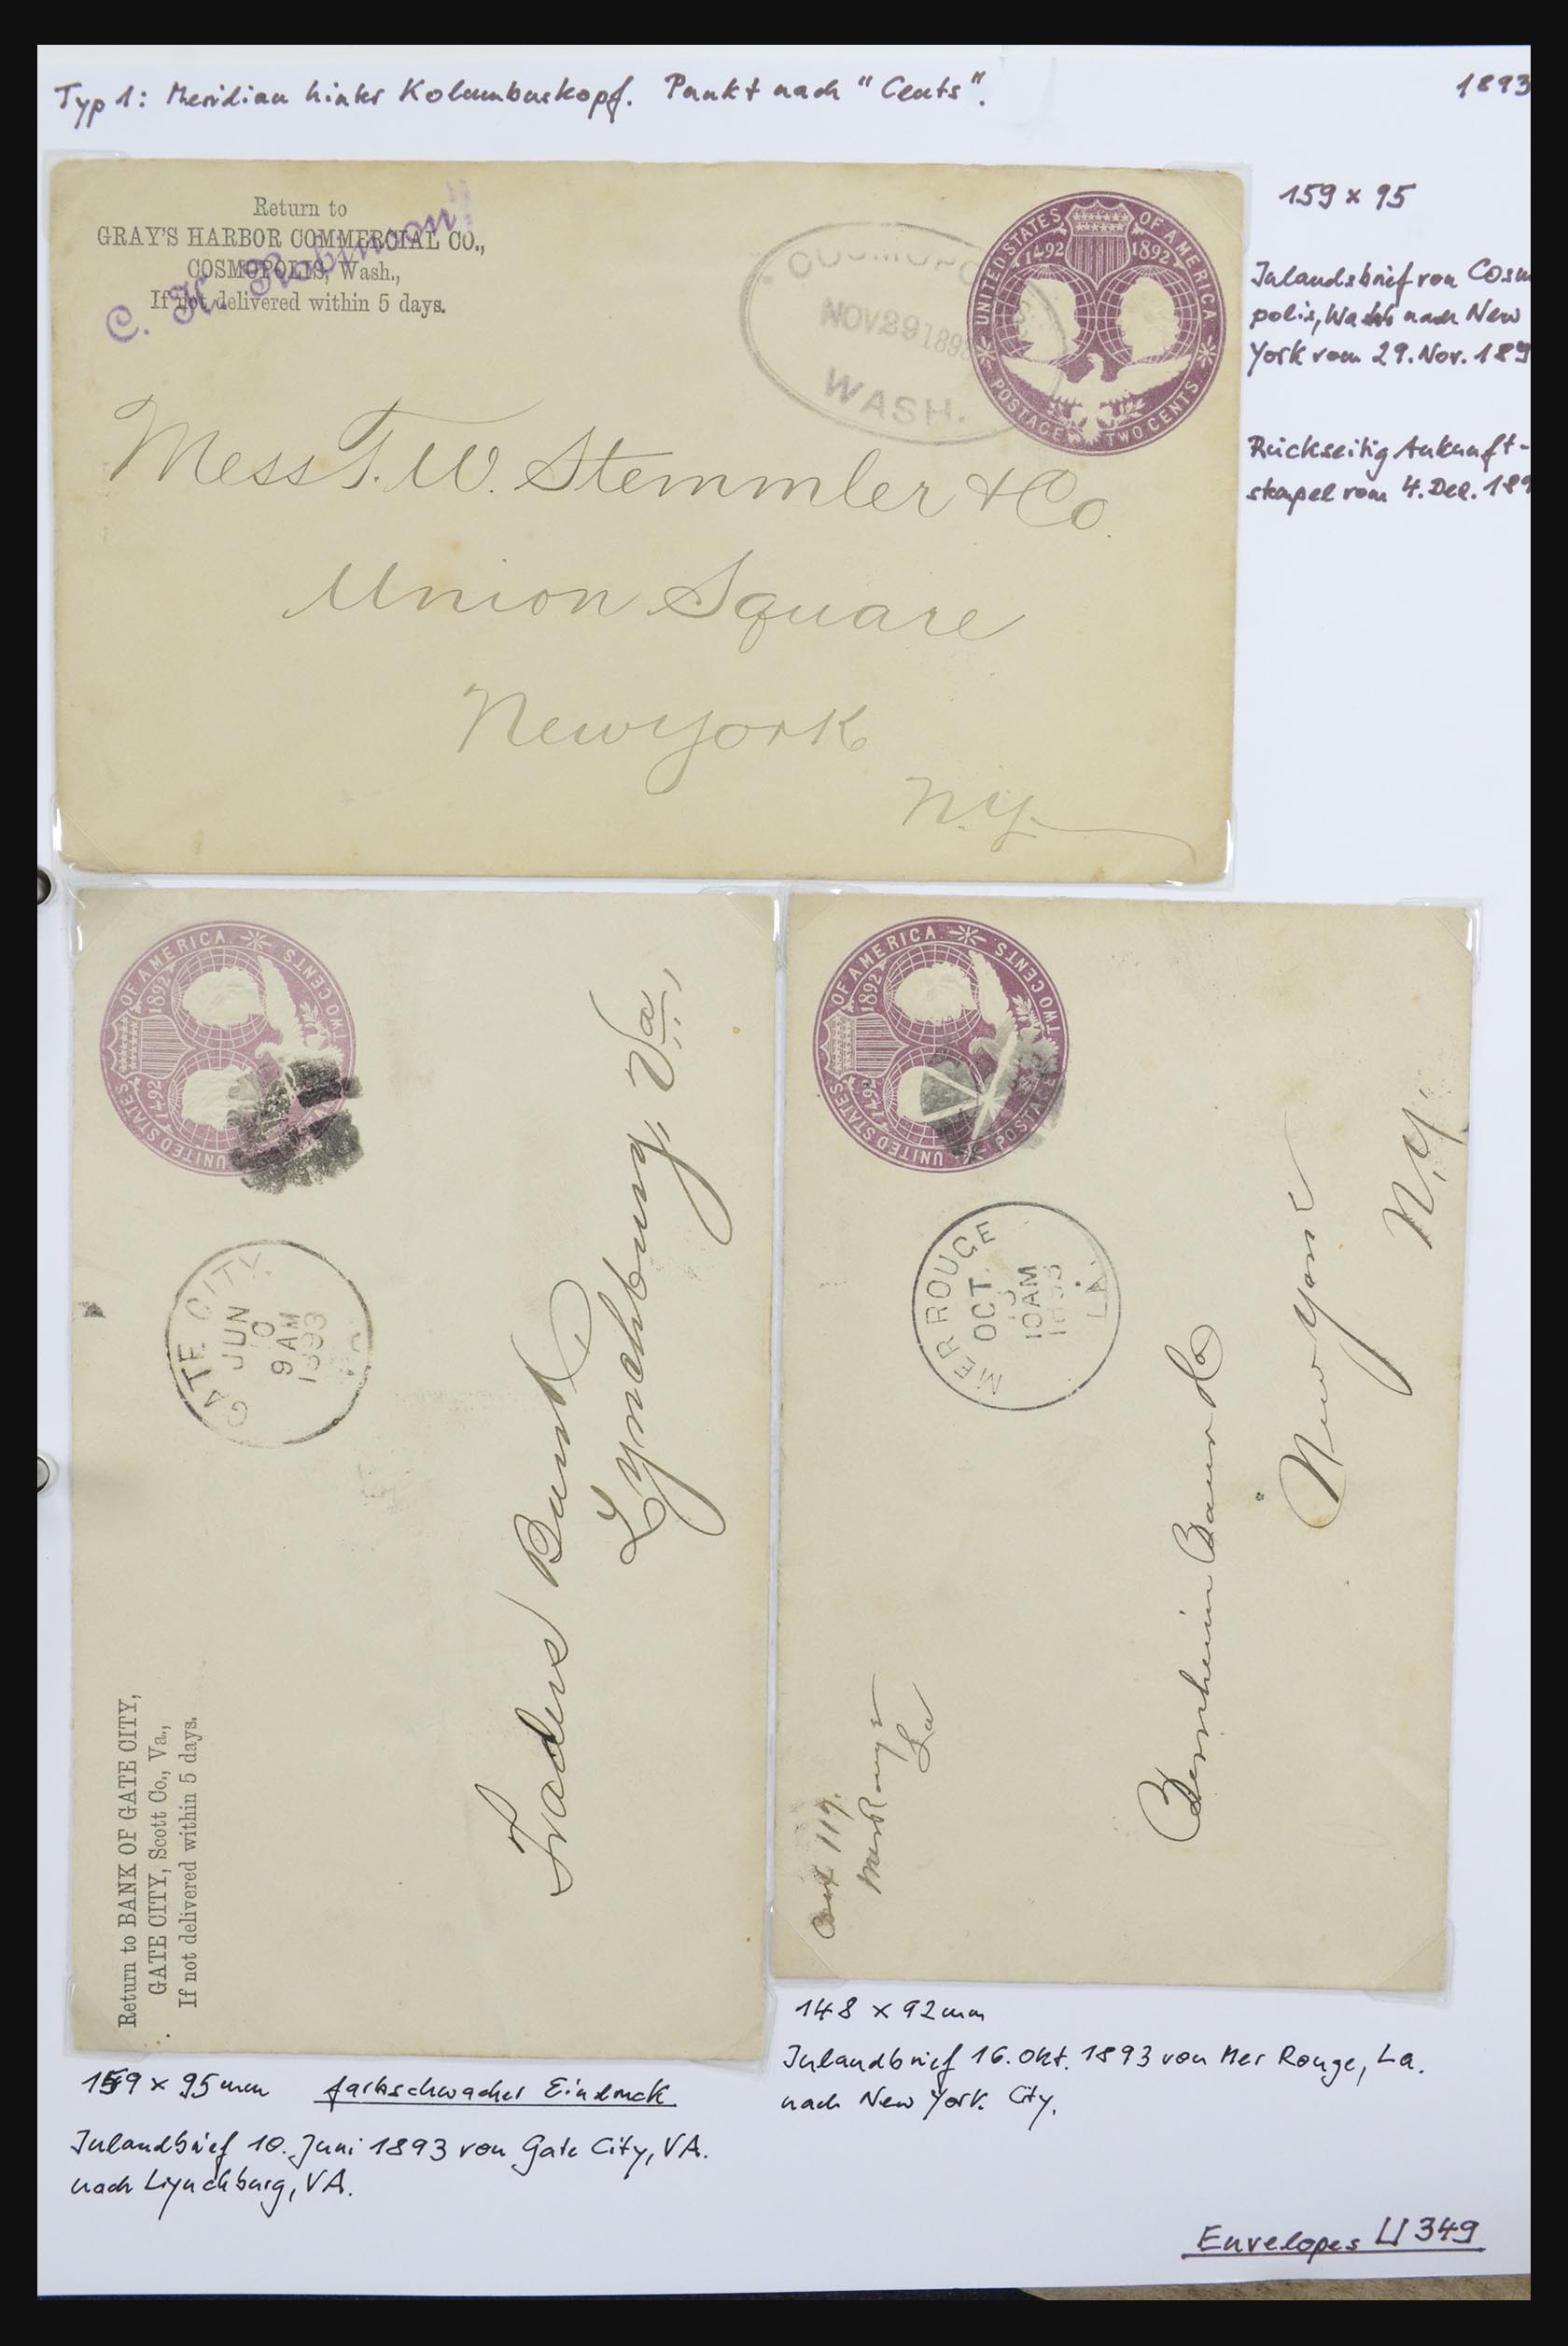 Typ 1: Meridian hinter Kolumbuskopf. Punkt nach "Cents".
1893
Return to
GRAY'S HARBOR COMMERCIAL CO.,
COSMOPOLIS, Wash.,
If not delivered within 5 days.
C. H. Robinson
NOV 29 189
WASH.
UNITED STATES OF AMERICA
1492 1892
POSTAGE TWO CENTS
Mess T. W. Stemmler & Co.
Union Square
New York
N.Y.
159 x 95
Inlandsbrief von Cosm
polis, Wash nach New
York vom 29. Nov. 189
Rückseitig Ankunft-
stempel vom 4. Dec. 189
UNITED STATES OF AMERICA
1492 1892
TWO CENTS
GATE CITY
JUN
10
9 AM
1893
Traders Bank
Lynchburg, Va.,
Return to BANK OF GATE CITY,
GATE CITY, Scott Co., Va.,
If not delivered within 5 days.
159 x 95 mm farbschwacher Eindruck
Inlandbrief 10. Juni 1893 von Gate City, VA.
nach Liynchburg, VA.
UNITED STATES OF AMERICA
1492 1892
POSTAGE TWO CENTS
MER ROUGE
OCT
10 AM
1893
LA.
Bernheim Bauer & Co
New York
N.Y.
Mer Rouge
La
148 x 92 mm
Inlandbrief 16. Okt. 1893 von Mer Rouge, La.
nach New York City.
Envelopes U 349